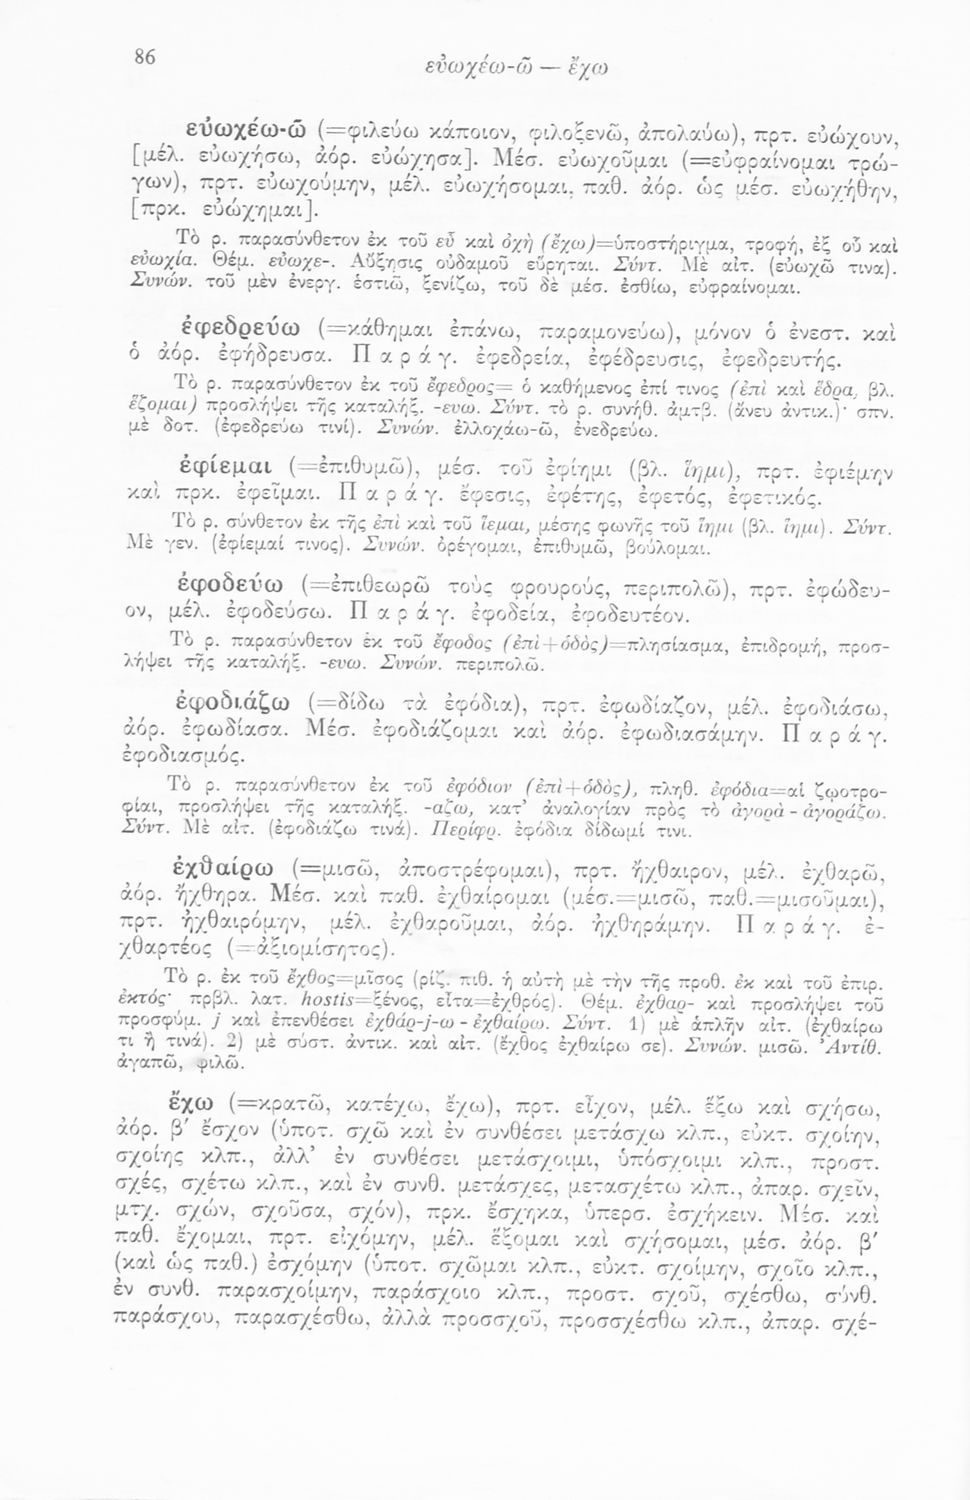 86
εὐωχέω-ῶ — ἔχω
εὐωχέω-ῶ (=φιλεύω κάποιον, φιλοξενῶ, ἀπολαύω), πρτ. εὐώχουν,
[μέλ. εὐωχήσω, ἀόρ. εὐώχησα]. Μέσ. εὐωχοῦμαι (=εὐφραίνομαι τρώ-
γων), πρτ. εὐωχούμην, μέλ. εὐωχήσομαι, παθ. ἀόρ. ὡς μέσ. εὐωχήθην,
[πρκ. εὐώχημαι].
Τὸ ρ. παρασύνθετον ἐκ τοῦ εὖ καὶ ὀχὴ (ἔχω)=ὑποστήριγμα, τροφή, ἐξ οὗ καὶ
εὐωχία. Θέμ. εὐωχε-. Αὔξησις οὐδαμοῦ εὕρηται. Σύντ. Μὲ αἰτ. (εὐωχῶ τινα).
Συνών. τοῦ μὲν ἐνεργ. ἑστιῶ, ξενίζω, τοῦ δὲ μέσ. ἐσθίω, εὐφραίνομαι.
ἐφεδρεύω (=κάθημαι ἐπάνω, παραμονεύω), μόνον ὁ ἐνεστ. καὶ
ὁ ἀόρ. ἐφήδρευσα. Παράγ. ἐφεδρεία, ἐφέδρευσις, ἐφεδρευτής.
Τὸ ρ. παρασύνθετον ἐκ τοῦ ἔφεδρος= ὁ καθήμενος ἐπί τινος (ἐπὶ καὶ ἕδρα, βλ.
ἕζομαι) προσλήψει τῆς καταλήξ. -ευω. Σύντ. τὸ ρ. συνήθ. ἀμτβ. (ἄνευ ἀντικ.)· σπν.
μὲ δοτ. (ἐφεδρεύω τινί). Συνών. ἐλλοχάω-ῶ, ἐνεδρεύω.
ἐφίεμαι (=ἐπιθυμῶ), μέσ. τοῦ ἐφίημι (βλ. ἵημι), πρτ. ἐφιέμην
καὶ πρκ. ἐφεῖμαι. Παράγ. ἔφεσις, ἐφέτης, ἐφετός, ἐφετικός.
Τὸ ρ. σύνθετον ἐκ τῆς ἐπὶ καὶ τοῦ ἵεμαι, μέσης φωνῆς τοῦ ἵημι (βλ. ἵημι). Σύντ.
Μὲ γεν. (ἐφίεμαί τινος). Συνών. ὀρέγομαι, ἐπιθυμῶ, βούλομαι.
ἐφοδεύω (=ἐπιθεωρῶ τοὺς φρουρούς, περιπολῶ), πρτ. ἐφώδευ-
ον, μέλ. ἐφοδεύσω. Παράγ. ἐφοδεία, ἐφοδευτέον.
Τὸ ρ. παρασύνθετον ἐκ τοῦ ἔφοδος (ἐπὶ+ὁδὸς)=πλησίασμα, ἐπιδρομή, προσ-
λήψει τῆς καταλήξ. -ευω. Συνών. περιπολῶ.
ἐφοδιάζω (=δίδω τὰ ἐφόδια), πρτ. ἐφωδίαζον, μέλ. ἐφοδιάσω,
ἀόρ. ἐφωδίασα. Μέσ. ἐφοδιάζομαι καὶ ἀόρ. ἐφωδιασάμην. Παράγ.
ἐφοδιασμός.
Τὸ ρ. παρασύνθετον ἐκ τοῦ ἐφόδιον (ἐπὶ+ὁδὸς), πληθ. ἐφόδια=αἱ ζωοτρο-
φίαι, προσλήψει τῆς καταλήξ. -αζω, κατ' ἀναλογίαν πρὸς τὸ ἀγορὰ - ἀγοράζω.
Σύντ. Μὲ αἰτ. (ἐφοδιάζω τινά). Περίφρ. ἐφόδια δίδωμί τινι.
ἐχθαίρω (=μισῶ, ἀποστρέφομαι), πρτ. ἤχθαιρον, μέλ. ἐχθαρῶ,
ἀόρ. ἤχθηρα. Μέσ. καὶ παθ. ἐχθαίρομαι (μέσ.=μισῶ, παθ.=μισοῦμαι),
πρτ. ἠχθαιρόμην, μέλ. ἐχθαροῦμαι, ἀόρ. ἠχθηράμην. Παράγ. ἐ-
χθαρτέος (=ἀξιομίσητος).
Τὸ ρ. ἐκ τοῦ ἔχθος=μῖσος (ρίζ. πιθ. ἡ αὐτὴ μὲ τὴν τῆς προθ. ἐκ καὶ τοῦ ἐπιρ.
ἐκτός· πρβλ. λατ. hostis=ξένος, εἶτα=ἐχθρός). Θέμ. ἐχθαρ- καὶ προσλήψει τοῦ
προσφύμ. j καὶ ἐπενθέσει ἐχθάρ-j-ω - ἐχθαίρω. Σύντ. 1) μὲ ἁπλῆν αἰτ. (ἐχθαίρω
τι ἢ τινά). 2) μὲ σύστ. ἀντικ. καὶ αἰτ. (ἔχθος ἐχθαίρω σε). Συνών. μισῶ. Ἀντίθ.
ἀγαπῶ, φιλῶ.
ἔχω (=κρατῶ, κατέχω, ἔχω), πρτ. εἶχον, μέλ. ἕξω καὶ σχήσω,
ἀόρ. β' ἔσχον (ὑποτ. σχῶ καὶ ἐν συνθέσει μετάσχω κλπ., εὐκτ. σχοίην,
σχοίης κλπ., ἀλλ' ἐν συνθέσει μετάσχοιμι, ὑπόσχοιμι κλπ., προστ.
σχές, σχέτω κλπ., καὶ ἐν συνθ. μετάσχες, μετασχέτω κλπ., ἀπαρ. σχεῖν,
μτχ. σχών, σχοῦσα, σχόν), πρκ. ἔσχηκα, ὑπερσ. ἐσχήκειν. Μέσ. καὶ
παθ. ἔχομαι, πρτ. εἰχόμην, μέλ. ἕξομαι καὶ σχήσομαι, μέσ. ἀόρ. β'
(καὶ ὡς παθ.) ἐσχόμην (ὑποτ. σχῶμαι κλπ., εὐκτ. σχοίμην, σχοῖο κλπ.,
ἐν συνθ. παρασχοίμην, παράσχοιο κλπ., προστ. σχοῦ, σχέσθω, σύνθ.
παράσχου, παρασχέσθω, ἀλλὰ προσσχοῦ, προσσχέσθω κλπ., ἀπαρ. σχέ-